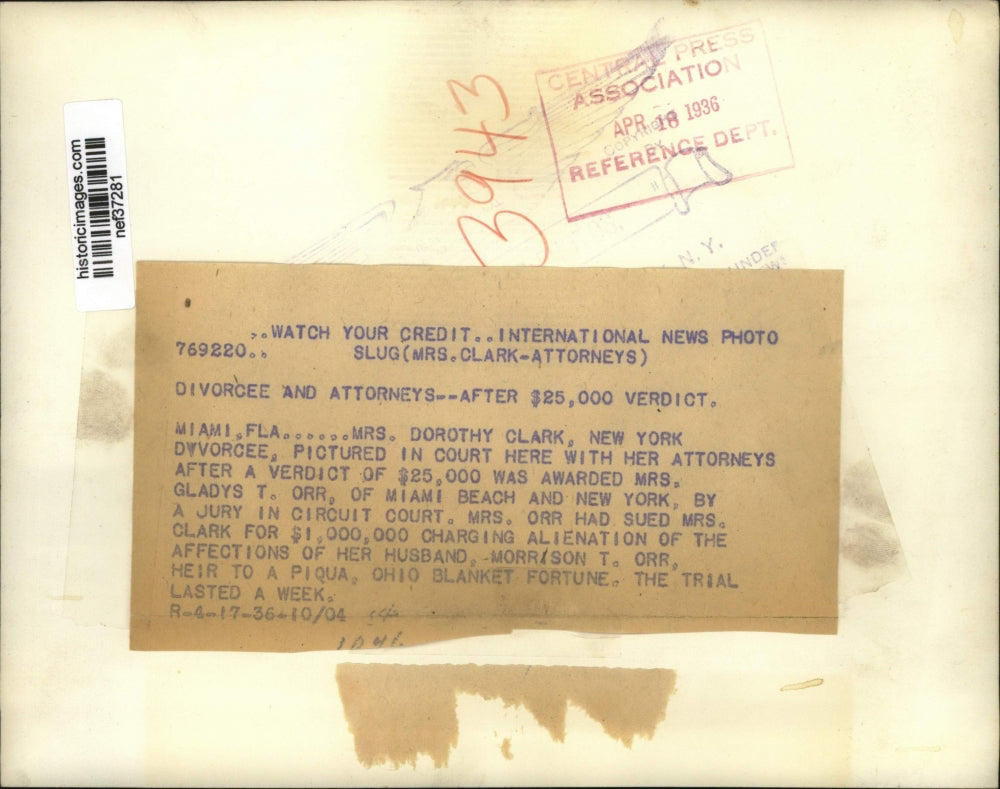 historicimages.com
nef37281
3943
CENTRAL PRESS
ASSOCIATION
APR 18 1936
COPYRIGHT
BY
REFERENCE DEPT.
N. Y.
UNDER
..WATCH YOUR CREDIT..INTERNATIONAL NEWS PHOTO
769220.. SLUG(MRS.CLARK-ATTORNEYS)
DIVORCEE AND ATTORNEYS--AFTER $25,000 VERDICT.
MIAMI,FLA......MRS. DOROTHY CLARK, NEW YORK
DVVORCEE, PICTURED IN COURT HERE WITH HER ATTORNEYS
AFTER A VERDICT OF $25,000 WAS AWARDED MRS.
GLADYS T. ORR, OF MIAMI BEACH AND NEW YORK, BY
A JURY IN CIRCUIT COURT. MRS. ORR HAD SUED MRS.
CLARK FOR $1,000,000 CHARGING ALIENATION OF THE
AFFECTIONS OF HER HUSBAND, MORRISON T. ORR,
HEIR TO A PIQUA, OHIO BLANKET FORTUNE. THE TRIAL
LASTED A WEEK.
R-4-17-36-10/04